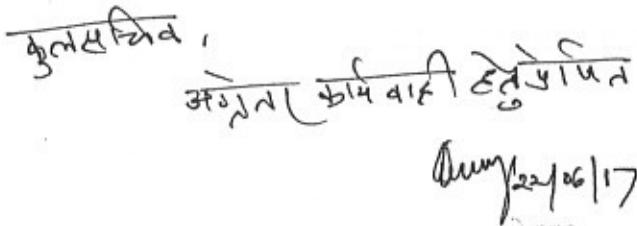 कुलसचिव,
अग्रेतर कार्यवाही हेतु प्रेषित
22/06/17